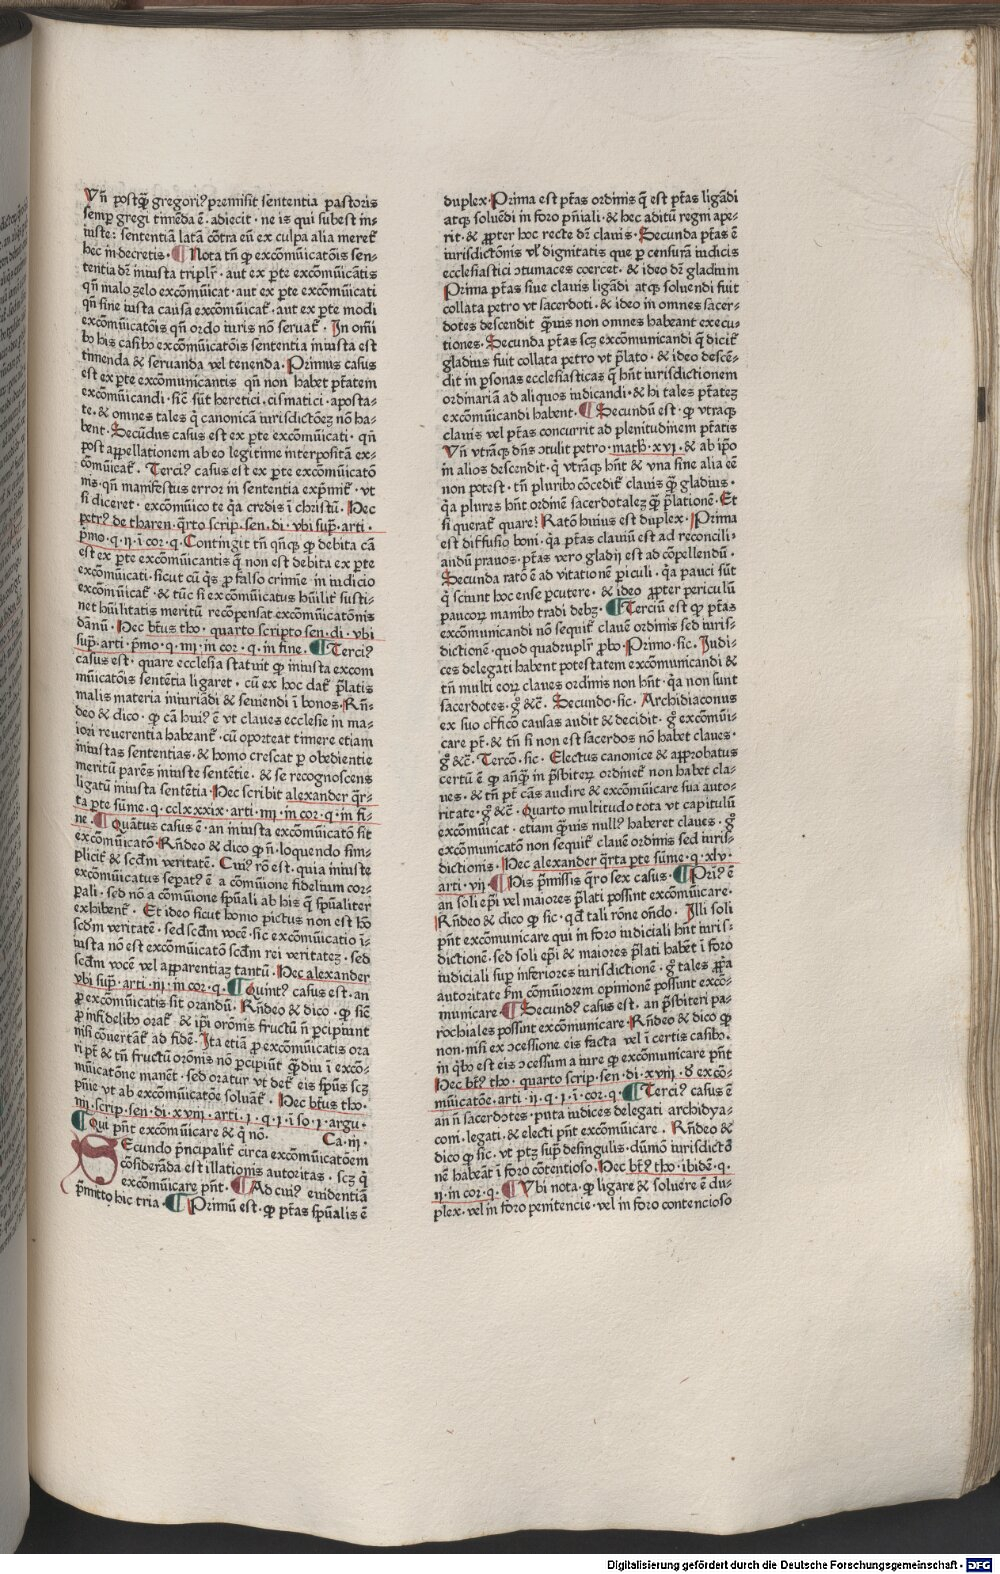 Vn̄ postqͣꝫ gregoriꝰ premisit sententia pastoris
semꝑ gregi timēda ē · adiecit · ne is qui subest in-
iuste: sententiā latā cōtra eū ex culpa alia meretͬ
hec in decretis · ¶ Nota tn̄ ꝙ excōmūicatōis sen-
tentia dr̄ iniusta triplr̄ · aut ex ꝑte excōmūicātis
qn̄ malo zelo excōmūicat · aut ex ꝑte excōmūicati
qn̄ sine iusta causa excōmūicatͬ · aut ex ꝑte modi
excōmūicatōis qn̄ ordo iuris nō seruatͬ · In om̄i
bꝰ his casibꝰ excōmūicatōis sententia iniusta est
timenda & seruanda vel tenenda · Primus casus
est ex ꝑte excōmunicantis qn̄ non habet ptātem
excōmūicandi · sic̄ sūt heretici · cismatici · aposta-
te · & omnes tales q̄ canonicā iurisdictōeꝫ nō ha-
bent · Secūdus casus est ex ꝑte excōmūicati · qn̄
post appellationem ab eo legitime interpositā ex-
cōmūicatͬ · Terciꝰ casus est ex ꝑte excōmūicatō
nis · qn̄ manifestus error in sententia exp̄mitͬ · vt
si diceret · excōmūico te qͣ credis ī christū · Hec
petrꝰ de tharen · qͣrto scrip · sen · di · vbi supͣ · arti ·
p̄mo · q · ii · ī cor · q · Contingit tn̄ qn̄qꝫ ꝙ debita cā
est ex ꝑte excōmūicantis q̄ non est debita ex ꝑte
excōmūicati · sicut cū qͥs ꝓ falso crimīe in iudicio
excōmūicatͬ · & tūc si excōmūicatus hūilitͬ susti-
net hūilitatis meritū recōpensat excōmūicatōnis
dānū · Hec btūs tho · quarto scripto sen · di · vbi
supͣ · arti · p̄mo · q · iiii · in cor · q · in fine · ¶ Terciꝰ
casus est · quare ecclesia statuit ꝙ iniusta excom
mūicatōis sentētia ligaret · cū ex hoc datͬ p̄latis
malis materia iniuriādi & seuiendi ī bonos · Rn̄-
deo & dico · ꝙ cā huiꝰ ē vt claues ecclesie in ma-
iori reuerentia habeantͬ · cū oporteat timere etiam
iniustas sententias · & homo crescat ꝑ obedientie
meritū parēs iniuste sentētie · & se recognoscens
ligatū iniusta sentētia · Hec scribit alexander qͣr-
ta ꝑte sūme · q · cclxxxix · arti · iiii · in cor · q · in fi-
ne · ¶ Quātus casus ē · an iniusta excōmūicatō sit
excōmūicatō · Rn̄deo & dico ꝙ n̄ · loquendo sim-
plicitͬ & scd̄m veritatē · Cuiꝰ rō est · quia iniuste
excōmūicatus sepatꝰ ē a cōmūione fidelium cor-
ꝑali · sed nō a cōmūione spūali ab his q̄ spūaliter
exhibentͬ · Et ideo sicut homo pictus non est hō
scd̄m veritatē · sed scd̄m vocē · sic excōmūicatio ī-
iusta nō est excōmūicatō scd̄m rei veritateꝫ · sed
scd̄m vocē vel apparentiaꝫ tantū · Hec alexander
vbi supͣ · arti · iii · in cor · q · ¶ Quintꝰ casus est · an
ꝓ excōmūicatis sit orandū · Rn̄deo & dico · ꝙ sic̄
ꝓ infidelibꝰ oratͬ · & ip̄i orōnis fructū n̄ ꝑcipiunt
nisi cōuertātͬ ad fidē · Ita etiā ꝓ excōmūicatis ora
ri pt̄ & tn̄ fructū orōnis nō ꝑcipiūt qͣꝫdiu ī excō-
mūicatōne manēt · sed oratur vt detͬ eis sp̄us scꝫ
pn̄ie vt ab excōmūicatōe soluātͬ · Hec btūs tho ·
iiii · scrip · sen · di · xviii · arti · i · q · i · ī so · i · argu ·
¶ Qui pn̄t excōmūicare & q̄ nō · Ca · iii ·
Secundo p̄ncipalitͬ circa excōmūicatōem
cōsiderāda est illationis autoritas · scꝫ q̄
excōmūicare pn̄t · ¶ Ad cuiꝰ euidentiā
p̄mitto hic tria · ¶ Primū est · ꝙ ptās spūalis ē
duplex · Prima est ptās ordinis q̄ est ptās ligādi
atqꝫ soluēdi in foro pn̄iali · & hec aditū regni ape-
rit · & ꝓpter hoc recte dr̄ clauis · Secunda ptās ē
iurisdictōnis vl̄ dignitatis que ꝑ censurā iudicis
ecclesiastici ↄtumaces coercet · & ideo dr̄ gladium
Prima ptās siue clauis ligādi atqꝫ soluendi fuit
collata petro vt sacerdoti · & ideo in omnes sacer-
dotes descendit qͣuis non omnes habeant execu-
tiones · Secunda ptās scꝫ excōmunicandi q̄ dicitͬ
gladius fuit collata petro vt p̄lato · & ideo descē-
dit in ꝑsonas ecclesiasticas q̄ hn̄t iurisdictionem
ordinariā ad aliquos iudicandi · & hi tales ptāteꝫ
excōmūicandi habent · ¶ Secundū est · ꝙ vtraqꝫ
clauis vel ptās concurrit ad plenitudinem ptātis
Vn̄ vtrāqꝫ dn̄s ↄtulit petro · math̄ · xvi · & ab ip̄o
in alios descendit · q̄ vtrāqꝫ hn̄t & vna sine alia eē
non potest · tn̄ pluribꝰ cōcedit clauis qͣꝫ gladius ·
qͣ plures hn̄t ordinē sacerdotaleꝫ qͣꝫ p̄lationē · Et
si queratͬ quare? Ratō huius est duplex · Prima
est diffusio boni · qͣ ptās clauiū est ad reconcili-
andū prauos · ptās vero gladii est ad cōpellendū ·
Secunda ratō ē ad vitationē ꝑiculi · qͣ pauci sūt
q̄ sciunt hoc ense ꝑcutere · & ideo ꝓpter periculū
paucoꝝ manibꝰ tradi debꝫ · ¶ Terciū est ꝙ ptās
excōmunicandi nō sequitͬ clauē ordinis sed iuris-
dictionē · quod quadruplr̄ ꝓbo · Primo · sic · Iudi-
ces delegati habent potestatem excōmunicandi &
tn̄ multi eoꝝ claues ordinis non hn̄t · qͣ non sunt
sacerdotes · gͦ &c̄ · Secundo · sic · Archidiaconus
ex suo officō causas audit & decidit · gͦ excōmūi-
care pt̄ · & tn̄ si non est sacerdos nō habet claues ·
gͦ &c̄ · Tercō · sic · Electus canonice & approbatus
certū ē ꝙ añqͣꝫ in p̄sbiteꝝ ordinetͬ non habet cla-
ues · & tn̄ pt̄ cās audire & excōmūicare sua auto-
ritate · gͦ &c̄ · Quarto multitudo tota vt capitulū
excōmūicat · etiam qͣuis nullꝰ haberet claues · gͦ
excōmunicatō non sequitͬ clauē ordinis sed iuris-
dictionis · Hec alexander qͣrta ꝑte sūme · q · xlv ·
arti · vii · ¶ His p̄missis qͣro sex casus · ¶ Priꝰ ē
an soli ep̄i vel maiores p̄lati possint excōmūicare ·
Rn̄deo & dico ꝙ sic · qd̄ tali rōne on̄do · Illi soli
pn̄t excōmunicare qui in foro iudiciali hn̄t iuris-
dictionē · sed soli ep̄i & maiores p̄lati habēt ī foro
iudiciali suꝑ inferiores iurisdictionē · gͦ tales ꝓpͥa
autoritate scd̄m cōmūiorem opinionē possunt excō-
municare · ¶ Secundꝰ casus est · an p̄sbiteri pa-
rochiales possint excōmunicare · Rn̄deo & dico ꝙ
non · nisi ex ↄcessione eis facta vel ī certis casibꝰ ·
in qͥbꝰ est eis ↄcessum a iure ꝙ excōmunicare pn̄t
Hec btꝰ tho · quarto scrip · sen · di · xviii · ꝺ excō-
mūicatōe · arti · ii · q · i · ī · cor · q · ¶ Terciꝰ casus ē
an n̄ sacerdotes · puta iudices delegati archidya-
coni · legati · & electi pn̄t excōmunicare · Rn̄deo &
dico ꝙ sic · vt ptꝫ suꝑ de singulis · dūmō iurisdictō
nē habeāt ī foro cōtentioso · Hec btꝰ tho · ibidē · q ·
ii · in cor · q · ¶ Vbi nota · ꝙ ligare & soluere ē du-
plex · vel in foro penitencie · vel in foro contencioso
Digitalisierung gefördert durch die Deutsche Forschungsgemeinschaft - DFG